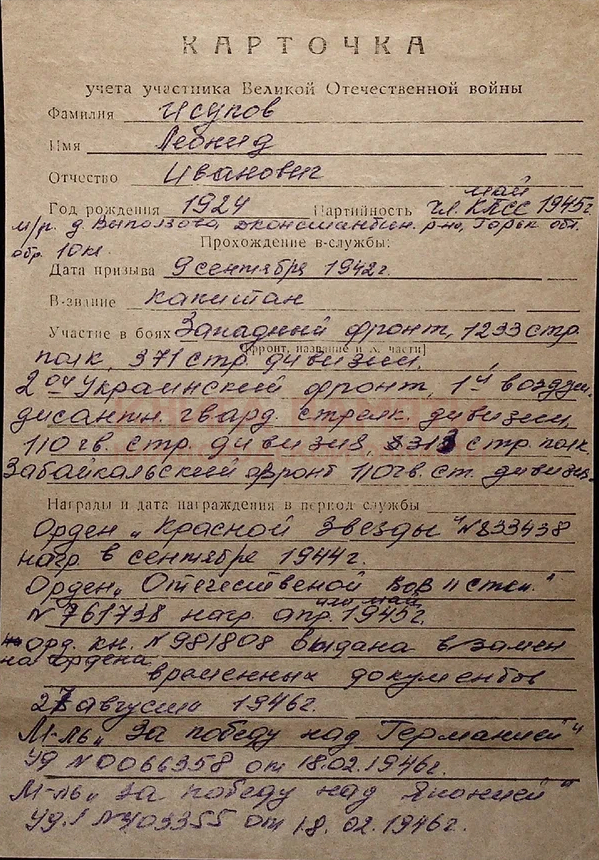 КАРТОЧКА
учета участника Великой Отечественной войны
Фамилия Исупов
Имя Леонид
Отчество Иванович
май
Год рождения 1924 Партийность чл. КПСС 1945г.
м/р. д. Выползова р-на, Горьк. обл.
обр. 10 кл. Прохождение в-службы:
Дата призыва 9 сентября 1942г.
В-звание капитан
Участие в боях Западный фронт, 1233 стр.
[фронт, название и № части]
полк, 371 стр. дивизии,
2ой Украинский фронт, 1я воздуш.
дисантн. гвард. стрелк. дивизии,
110 гв. стр. дивизия, 313 стр. полк
Забайкальский фронт 110 гв. ст. дивизия.
Награды и дата награждения в период службы
Орден „Красной Звезды" № 833438
нагр. в сентябре 1944г.
Орден „Отечественой ВОВ II степ."
или май
№ 761738 нагр. апр. 1945г.
орд. кн. № 981808 выдана в замен
на ордена временных документов
27 августа 1946г.
М-ль „За победу над Германией"
Уд № 0066358 от 18.02.1946г.
М-ль „За победу над Японией"
Уд. № 403355 от 18.02.1946г.